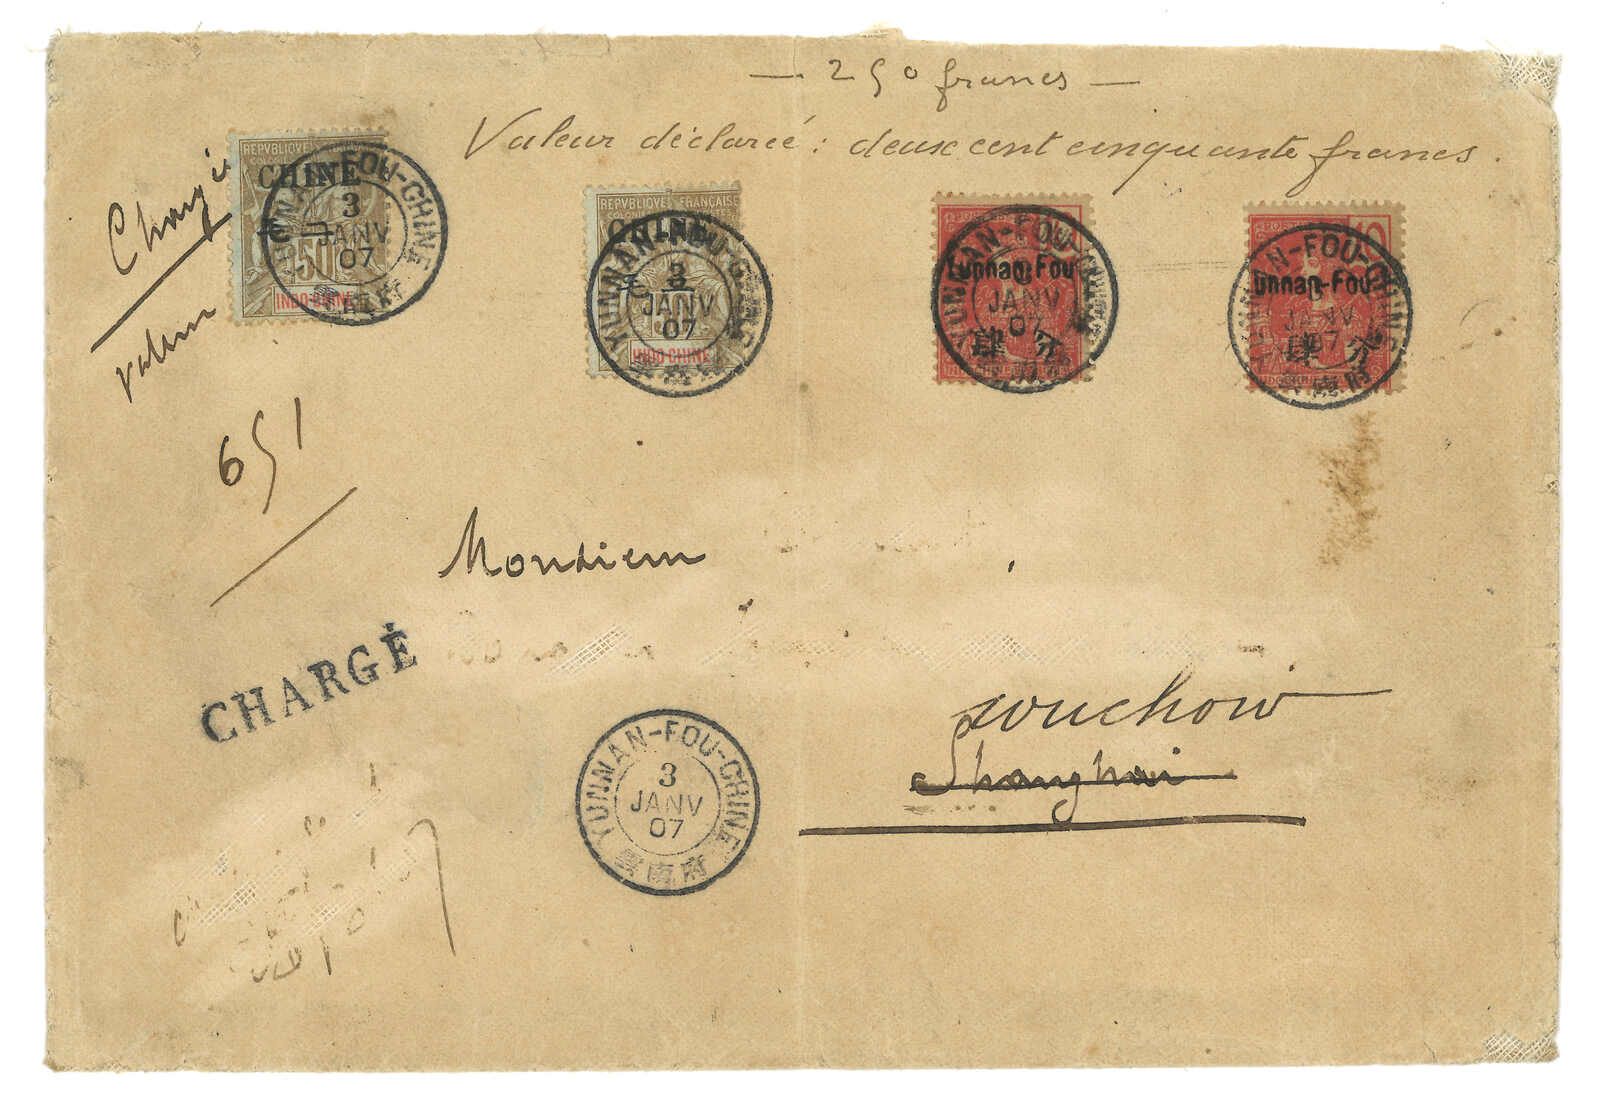 — 250 francs —
Valeur déclarée : deux cent cinquante francs.
Chargé
valeur
651
REPVBLIQVE
CHINE
50
INDO-CHINE
YUNNAN-FOU-CHINE
3
JANV
07
REPVBLIQVE FRANÇAISE
CHINE
INDO-CHINE
YUNNAN-FOU-CHINE
3
JANV
07
Yunnan-Fou
肆 分
YUNNAN-FOU-CHINE
3
JANV
07
10
Yunnan-Fou
肆 分
YUNNAN-FOU-CHINE
3
JANV
07
Monsieur
CHARGÉ
wuchow
Shanghai
YUNNAN-FOU-CHINE
3
JANV
07
雲南府